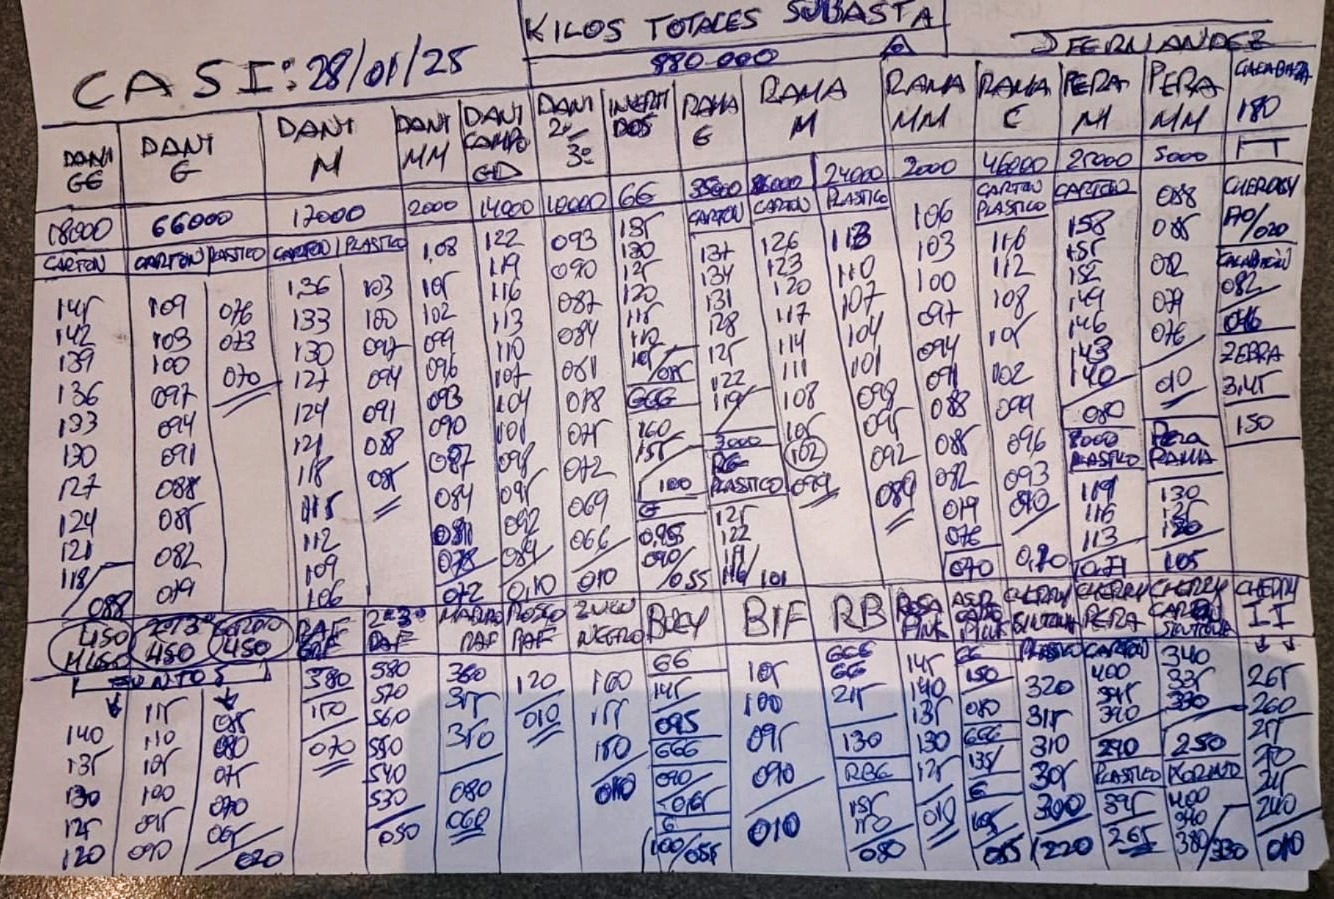 KILOS TOTALES SUBASTA
880.000
CASI: 28/01/25
JFERNANDEZ
DANI GG
DANI G
DANI M
DANI MM
DANI CAMPO GD
DANI 2º/3º
INVERTIDOS
RAMA G
RAMA M
RAMA MM
RAMA C
PERA M
PERA MM
CALABAZA
180
FT
18000 66000 17000 2000 14000 10000 GG 35000 24000 2000 46000 25000 5000
CARTON CARTON PLASTICO CARTON PLASTICO CARTON CARTON PLASTICO CARTON PLASTICO CARTON
145 142 139 136 133 130 127 124 121 118/088
109 103 100 097 094 091 088 085 082 079
076 073 070
136 133 130 127 124 121 118 115 112 109 106
103 100 097 094 091 088 085
1,08 105 102 099 096 093 090 087 084 081 078 072
122 119 116 113 110 107 104 101 098 095 092 089 0,10
093 090 087 084 081 078 075 072 069 066 010
135 130 125 120 115 110
GGG
160 155 100
G
0,95 090/055
137 134 131 128 125 122 119
3000
RG PLASTICO
125 122 119 116/101
126 123 120 117 114 111 108 105 102 099
113 110 107 104 101 098 095 092 089
106 103 100 097 094 091 088 085 082 079 076 070
116 112 108 105 102 099 096 093 090 0,70
158 155 152 149 146 143 140 080
PLASTICO
119 116 113 0,71
088 085 082 079 076 010
PERA RAMA
130 125 120 105
CHERRY
082
046
ZEBRA
3,45
150
450
2º3º 450
450
RAF
2º3º RAF
RAF
ROSCO RAF
NEGRO
BUEY
BIF
RB
ROSA PINK
PINK
CHERRY SINTONIA
CHERRY PERA
CHERRY CARTON SINTONIA
CHERRY II
JUNTOS
140 135 130 125 120
115 110 105 100 095 090
085 080 075 070 065/020
580 570 560 550 540 530 050
360 355 350 080 060
120 010
GG
145
095
GGG
090
G
100/055
105 100 095 090 010
GGG
GG
215
130
RBG
155 150 080
145 140 135 130 125 010
GG
150
080
GGG
135
G
105
085
PLASTICO
320 315 310 305 300 220
CARTON
400 395 390 290
PLASTICO
395
265
340 335 330 250
KORINTO
400 390 380/330
265 260 255 250 245 240 010